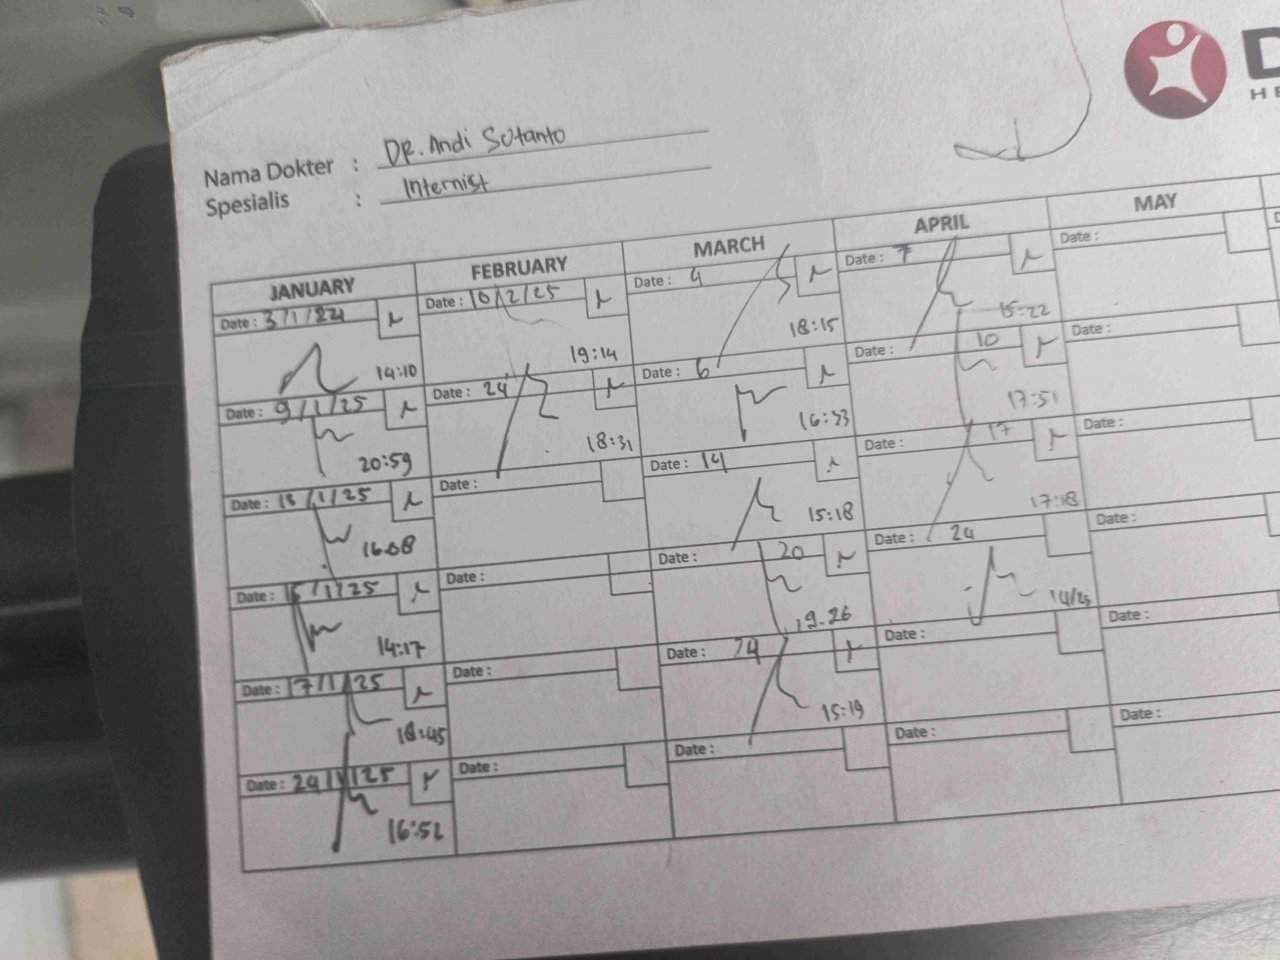 D
HE
Nama Dokter : DR. Andi Sutanto
Spesialis : Internist
JANUARY FEBRUARY MARCH APRIL MAY
Date : 3/1/24
14:10
Date : 9/1/25
20:59
Date : 13/1/25
16.08
Date : 15/1/25
14:17
Date : 17/1/25
18:45
Date : 24/1/25
16:52
Date : 10/2/25
19:14
Date : 24
18:31
Date :
Date :
Date :
Date :
Date : 4
18:15
Date : 6
16:33
Date : 14
15:18
Date : 20
19.26
Date : 24
15:19
Date :
Date : 7
15:22
Date : 10
17:51
Date : 17
17:18
Date : 24
Date :
Date :
Date :
Date :
Date :
Date :
Date :
Date :